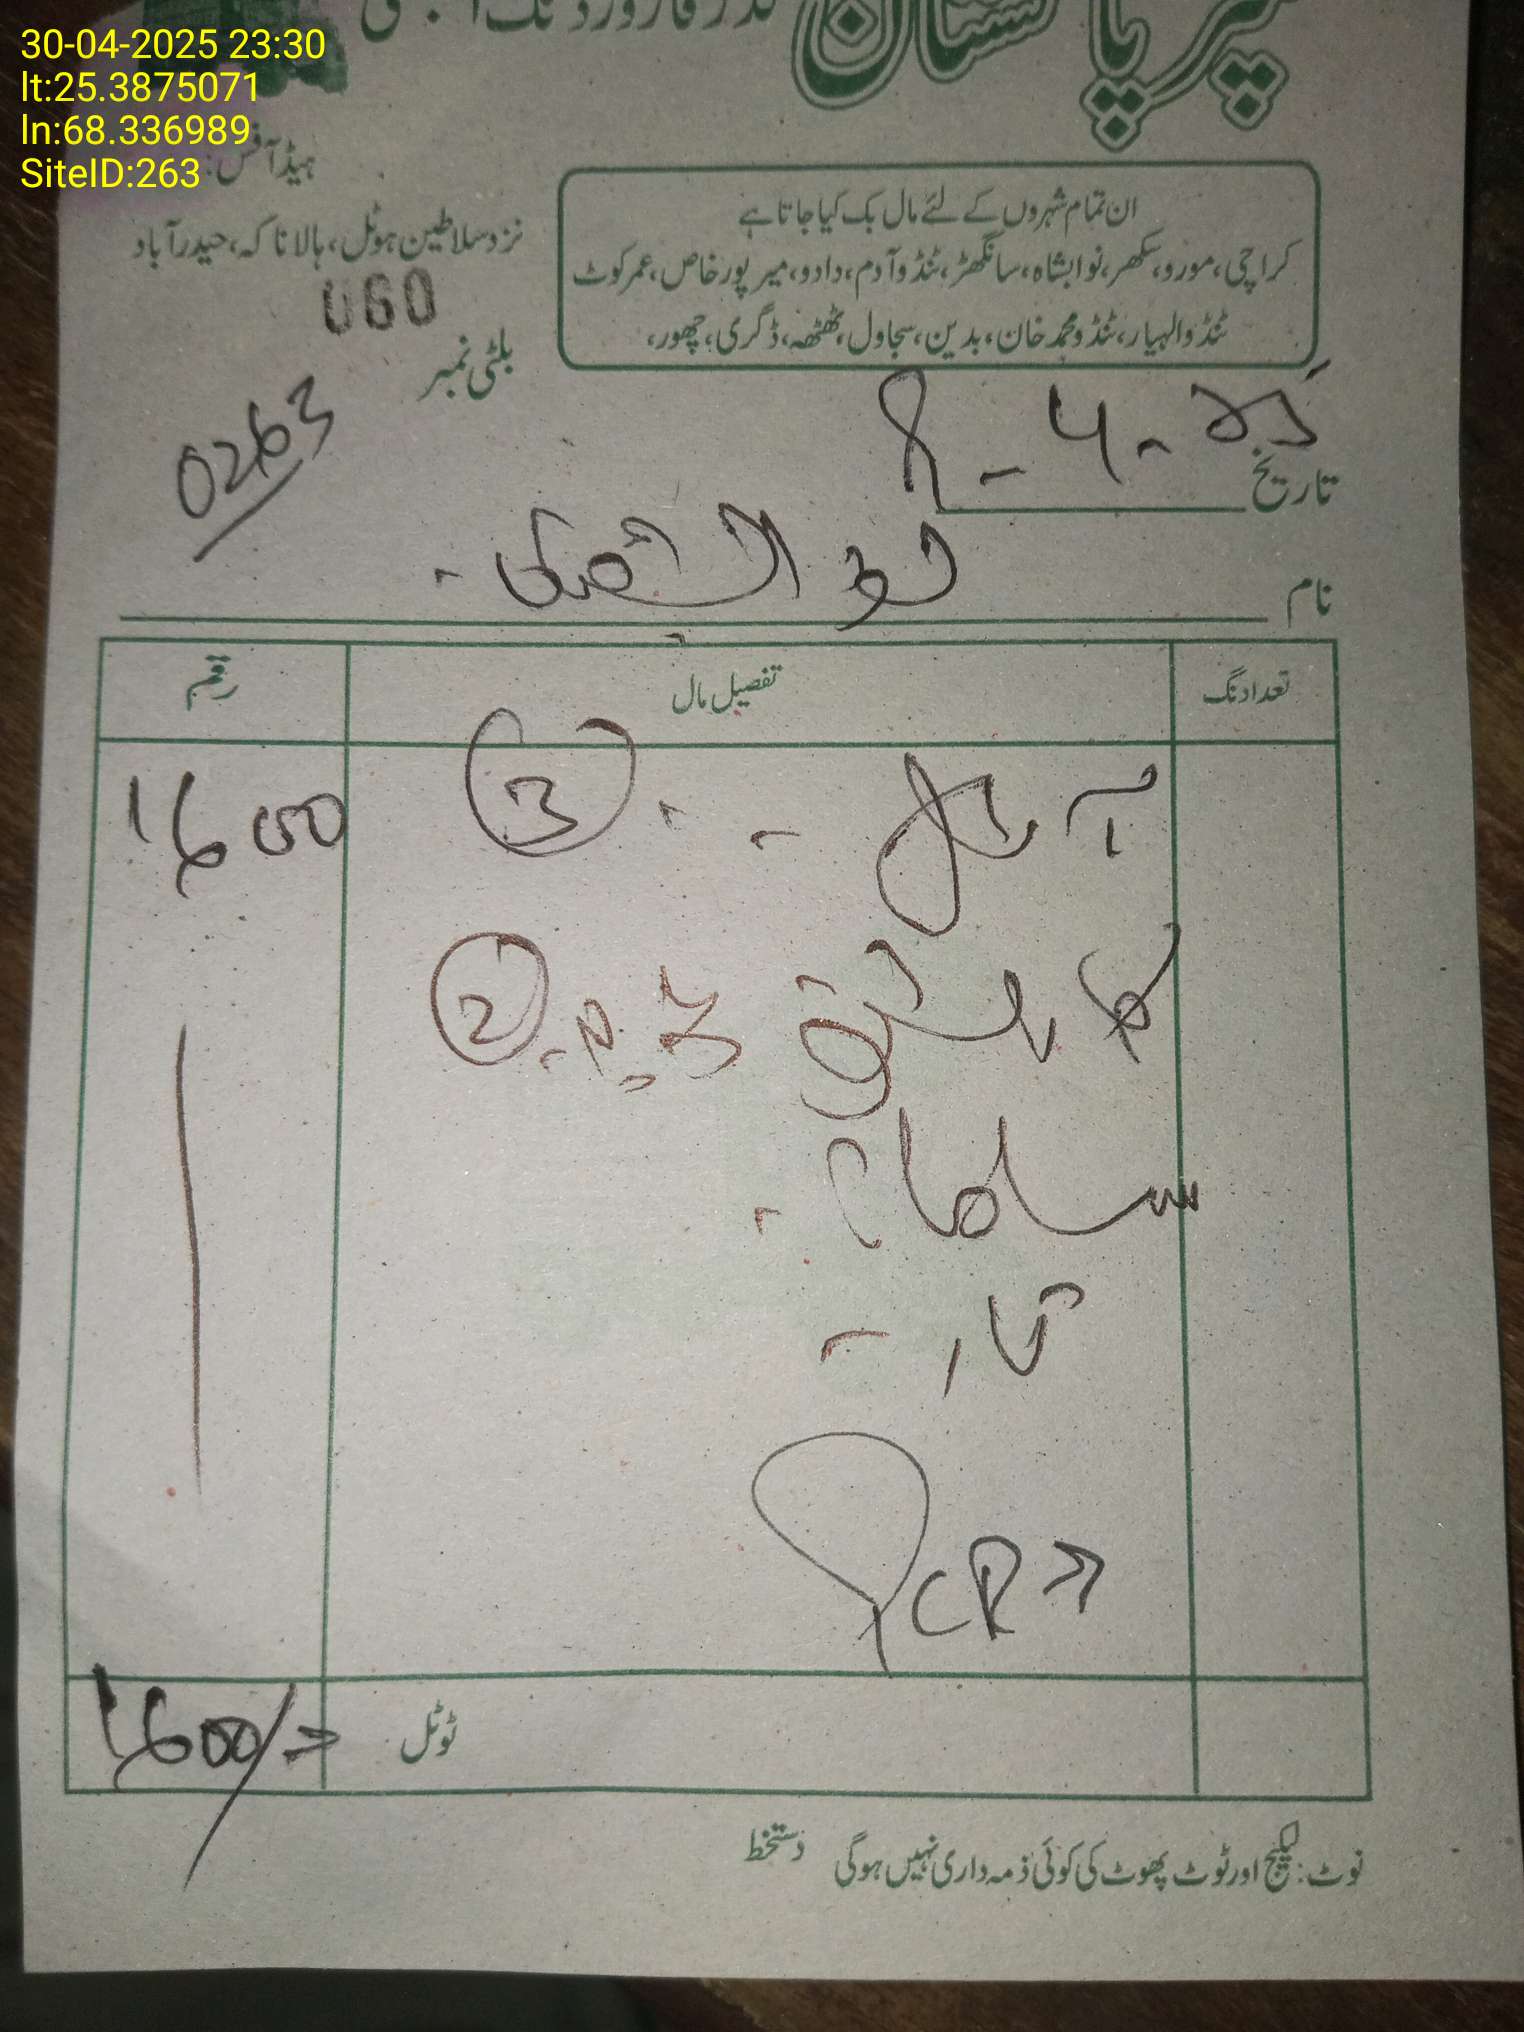 30-04-2025 23:30
lt:25.3875071
ln:68.336989
SiteID:263
سپر پاکستان گڈز فارورڈنگ ایجنسی
ہیڈ آفس:
نزد سلاطین ہوٹل، ہالا ناکہ، حیدرآباد
060
بلٹی نمبر
0263
ان تمام شہروں کے لئے مال بک کیا جاتا ہے
کراچی، مورو، سکھر، نوابشاہ، سانگھڑ، ٹنڈوآدم، دادو، میرپورخاص، عمرکوٹ
ٹنڈوالہیار، ٹنڈومحمدخان، بدین، سجاول، ٹھٹھہ، ڈگری، چھور،
تاریخ
نام
تعداد نگ تفصیل مال رقم
آئل 3 1600
2
سامان
تار
CR
ٹوٹل 1600/=
نوٹ: لیکیج اور ٹوٹ پھوٹ کی کوئی ذمہ داری نہیں ہوگی دستخط